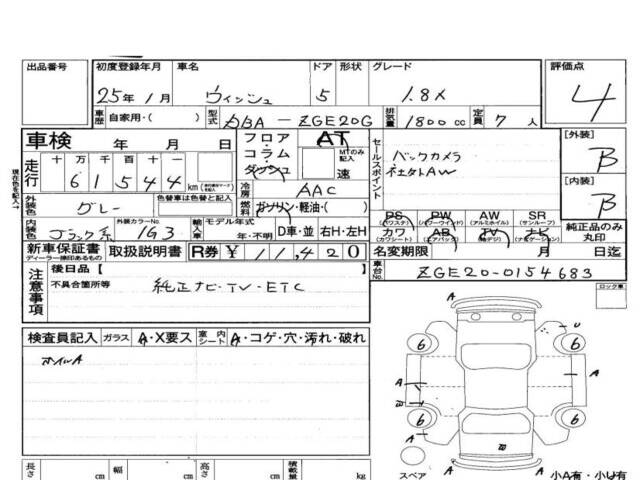 出品番号 初度登録年月 車名 ドア 形状 グレード 評価点
25年1月 ウィッシュ 5 1.8X 4
車歴 自家用・( ) 型式 DBA-ZGE20G 排気量 1800cc 定員 7人
車検 年 月 日
フロア・コラム・ダッシュ AT MTのみ記入 速
セールスポイント バックカメラ
[外装] B
走行 十万千百十 61544km
冷房 AAC
[内装] B
外装色 グレー 色替車は色替色を記入
燃料 ガソリン・軽油・( )
現在色を記入→
内装色 ブラック系 外装カラーNo. 1G3 輸入車 モデル年式 年・不明 D車・並 右H・左H
PS (パワステ) PW (パワーウインド) AW (アルミホイル) SR (サンルーフ) 純正品のみ丸印
カワ (カワシート) AB (エアバック) TV (地デジ) ナビ (ナビゲーション)
新車保証書 ディーラー捺印あるもの 取扱説明書 R券 ¥11,420 名変期限 月 日迄
注意事項 後日品【 】 車台No. ZGE20-0154683
不具合箇所等 純正ナビ・TV・ETC
ロック車
検査員記入 ガラス A・X要ス 室内シート A・コゲ・穴・汚れ・破れ
ホイルA
A
U
6 6
A A
6 6
A
スペア 小A有・小U有
長さ cm 幅 cm 高さ cm 積載量 kg